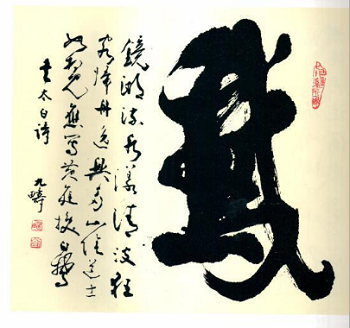 鵞
鏡湖流水漾清波狂
客歸舟逸興多山陰道士
如相見應寫黃庭換白鵞
太白詩
九疇